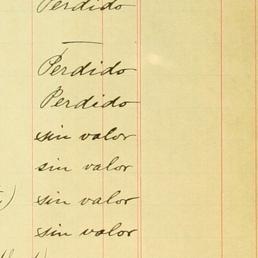 Perdido
Perdido
Perdido
sin valor
sin valor
sin valor
sin valor